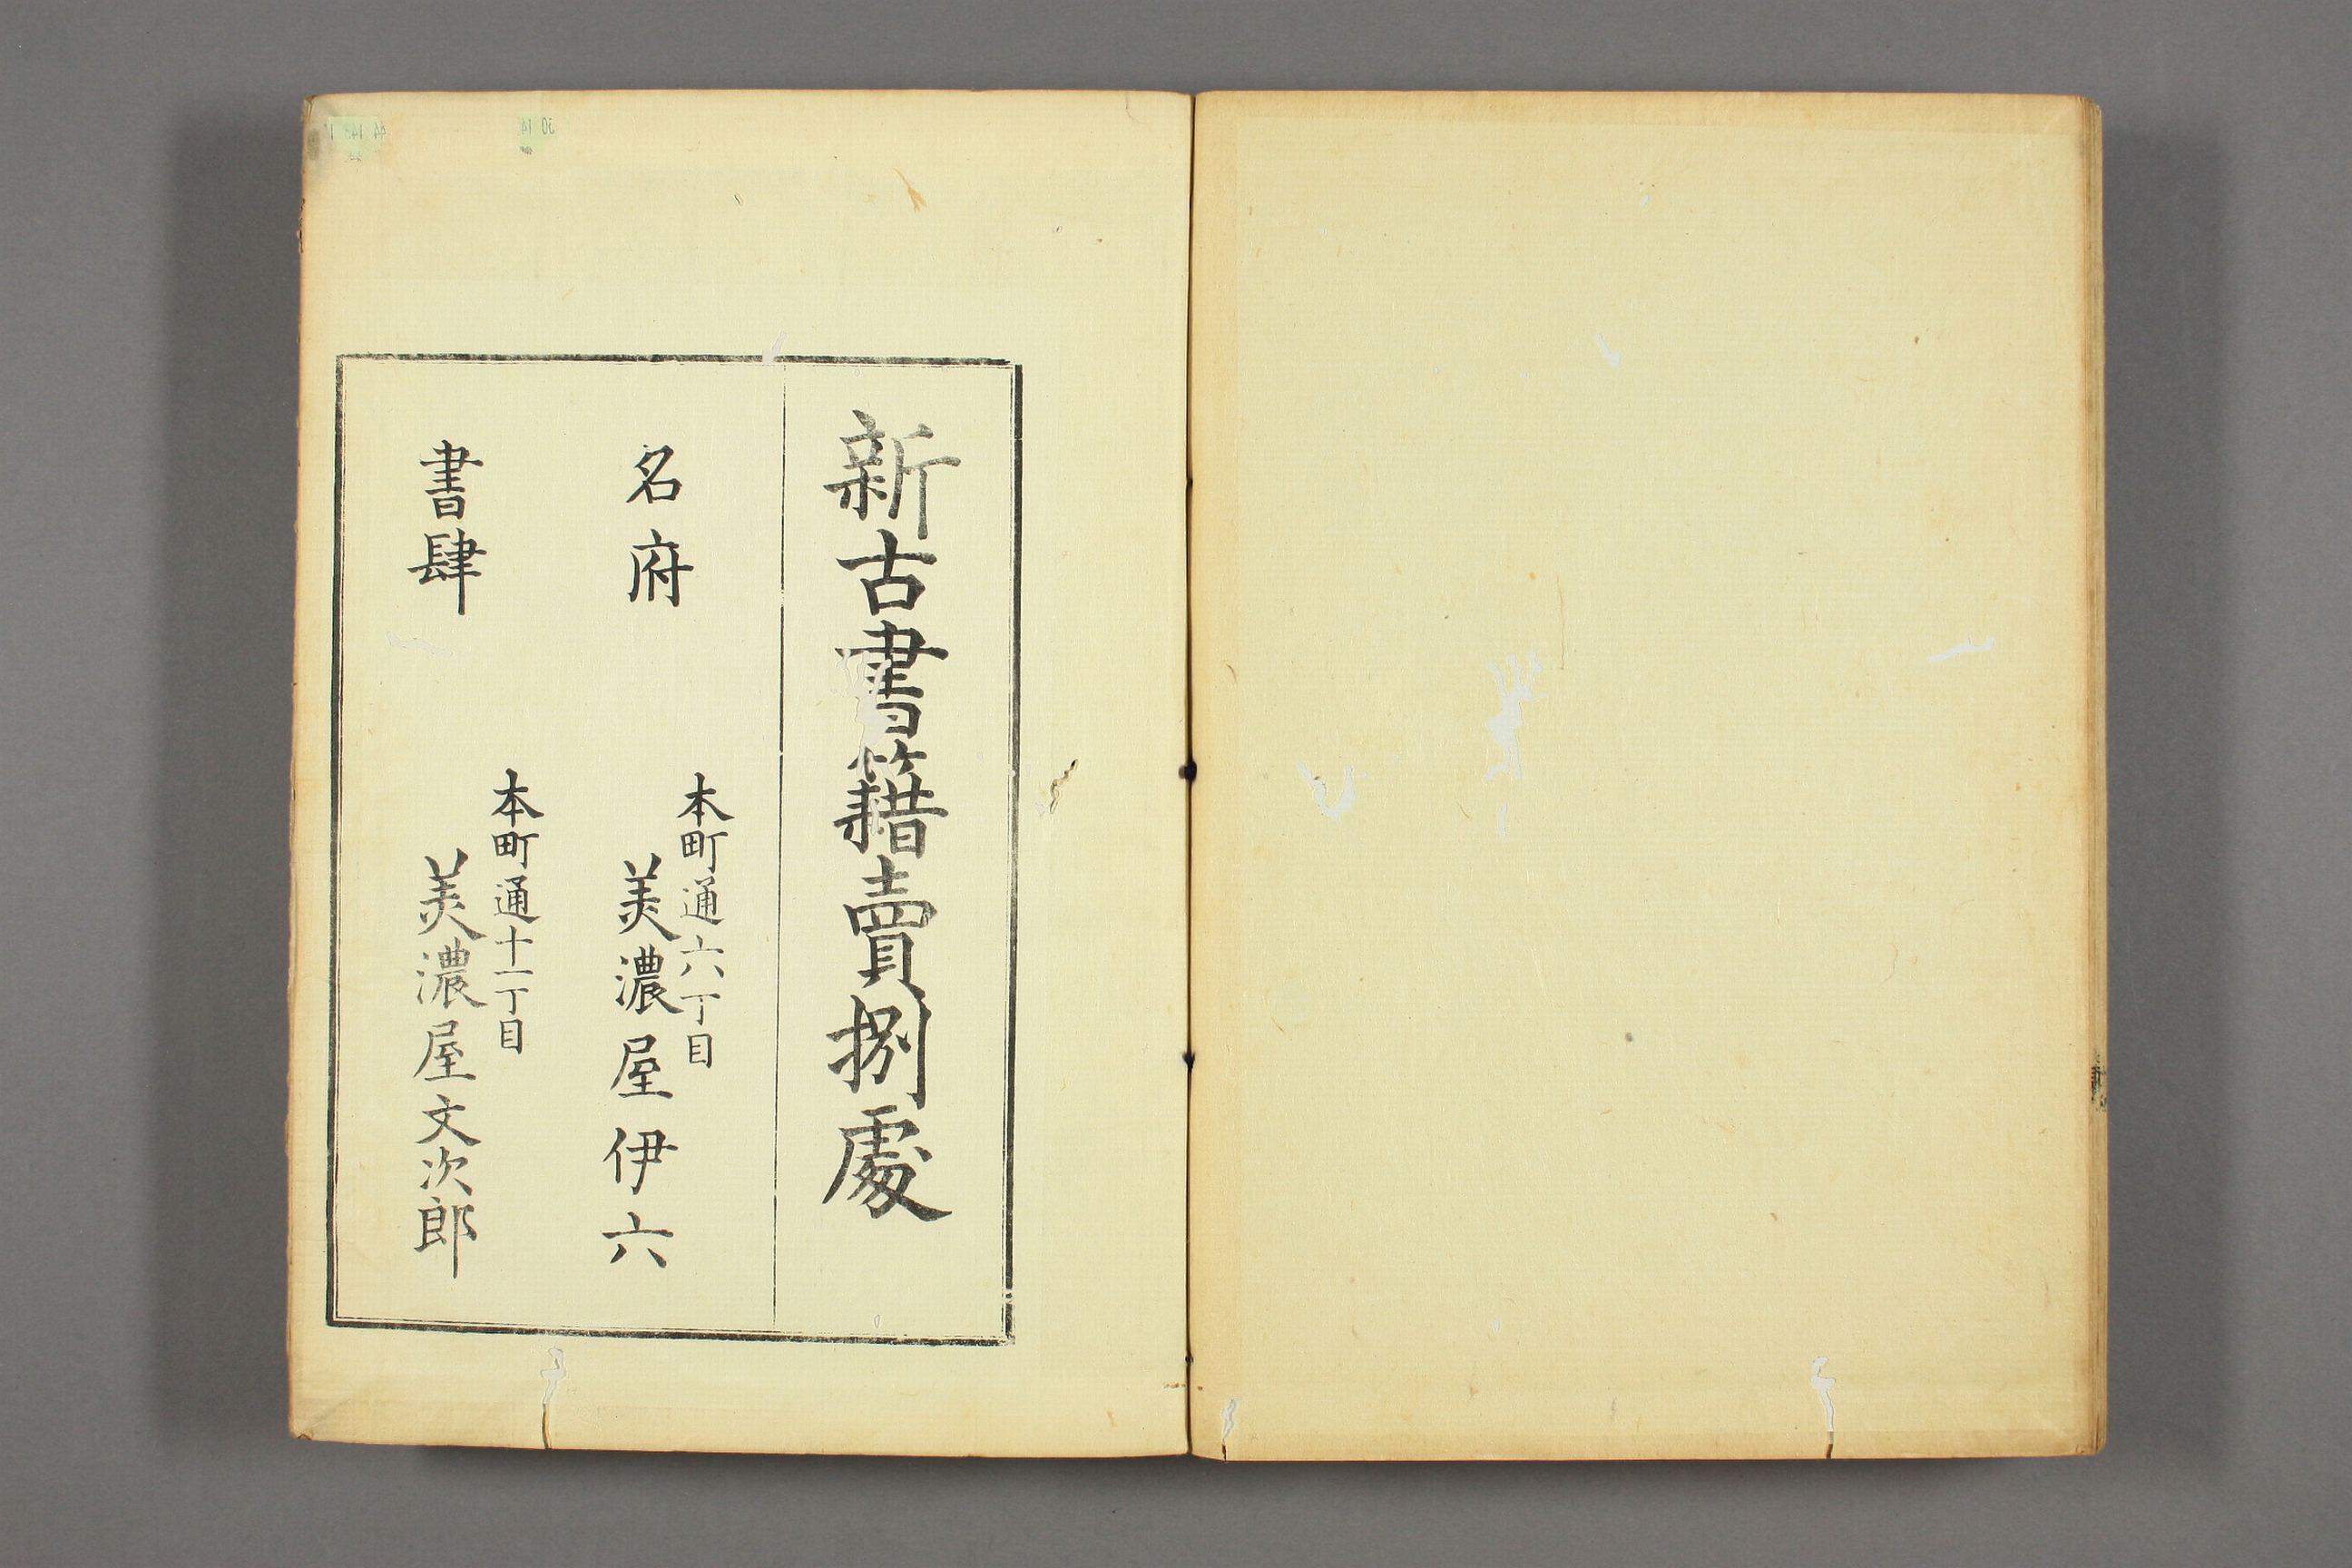 新古書籍賣捌處
名府
本町通六丁目
美濃屋伊六
書肆
本町通十一丁目
美濃屋文次郎